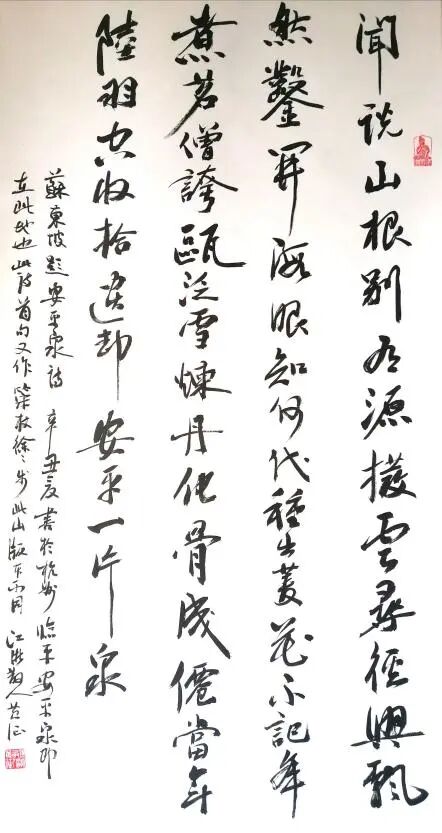 聞說山根別有源撥雲尋徑興飄
然鑿開海眼知何代種出菱花不記年
煮茗僧誇甌泛雪煉丹化骨成僊當年
陸羽空收拾遺却安平一片泉
蘇東坡題安平泉詩 辛丑夏書於杭州臨平安平泉即
在此地也此詩首句又作策杖徐〻步此山版本不同 江浙散人